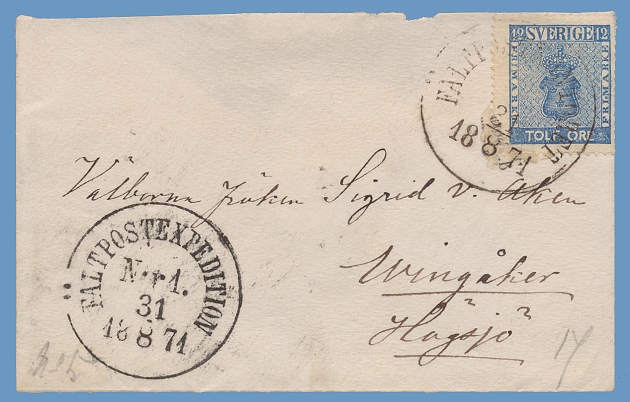 12 SVERIGE 12
FRIMÄRKE
FRIMÄRKE
TOLF ÖRE
18 8 71
Välborna Fröken Sigrid v. Aken
Wingåker
Högsjö
FÄLTPOSTEXPEDITION
N:r 1.
31
18 8 71
17